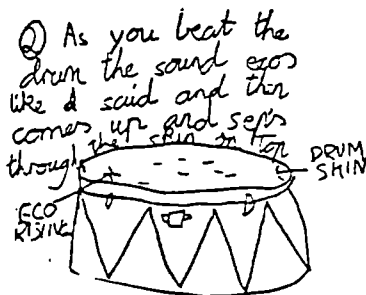 ② As you beat the
drum the sound egos
like I said and then
comes up and seps
through the skin on top
DRUM
SKIN
ECO
RISING